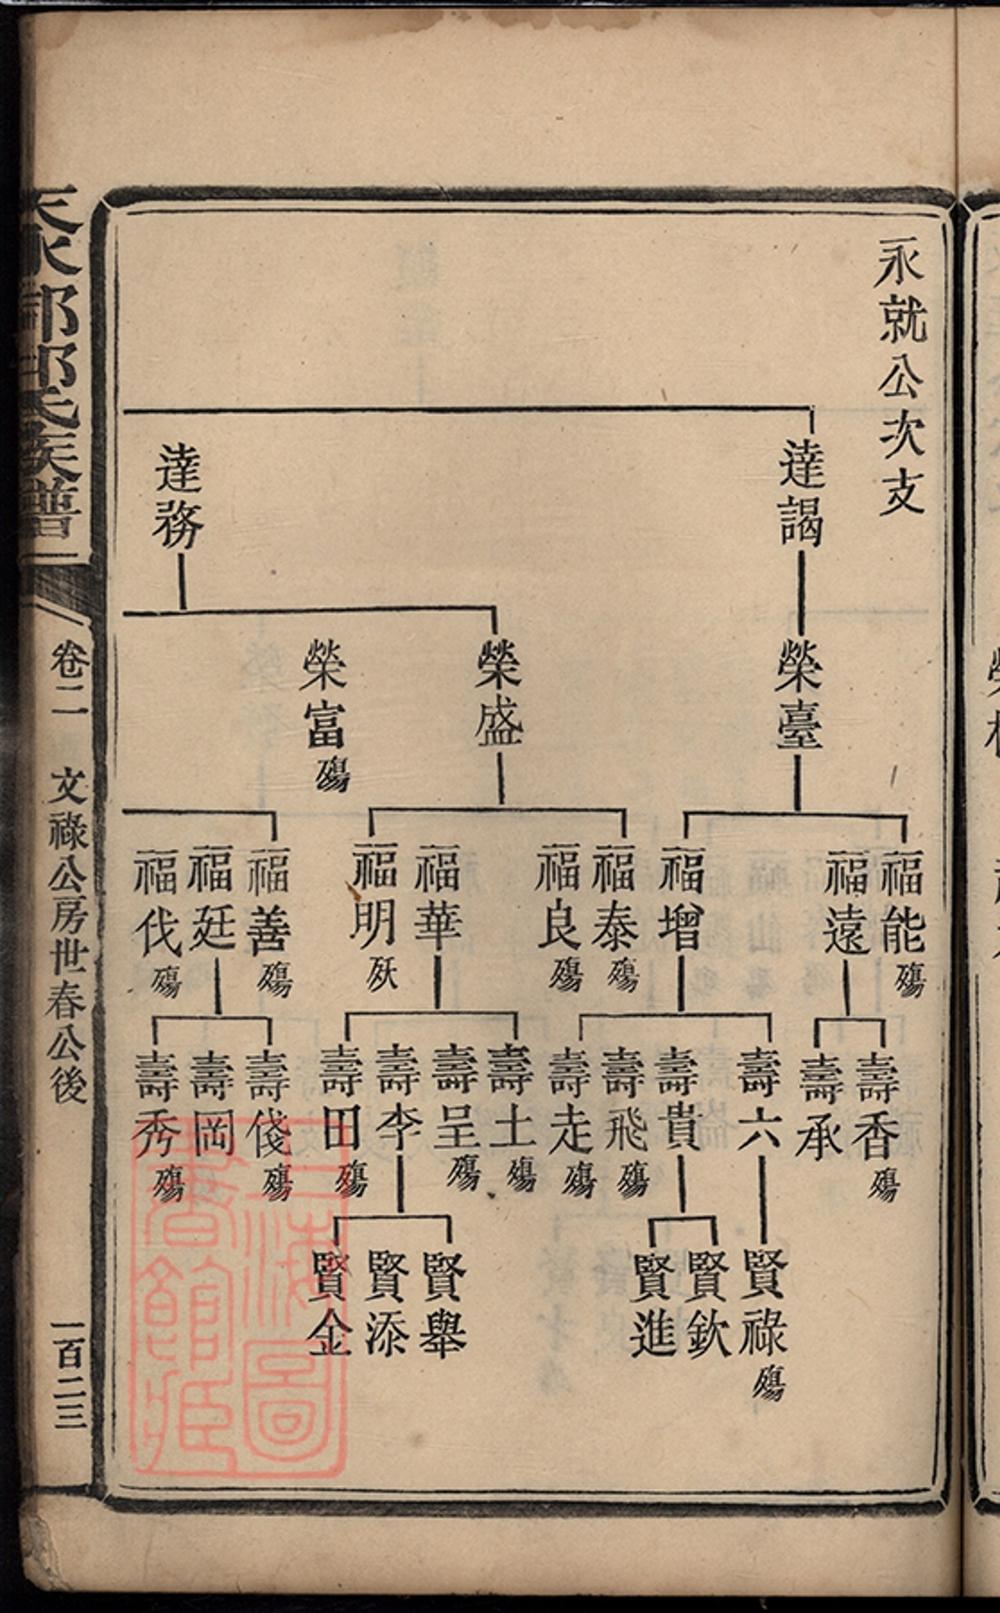 永就公次支
達謁
達務
榮臺
榮盛
榮富殤
福能殤
福遠
福增
福泰殤
福良殤
福華
福明殀
福善殤
福廷
福伐殤
壽香殤
壽承
壽六
壽貴
壽飛殤
壽走殤
壽土殤
壽呈殤
壽李
壽田殤
壽俴殤
壽岡
壽秀殤
賢祿殤
賢欽
賢進
賢舉
賢添
賢金
天水郡邱氏族譜
卷二 文祿公房世春公後 一百二三
上海圖書館藏